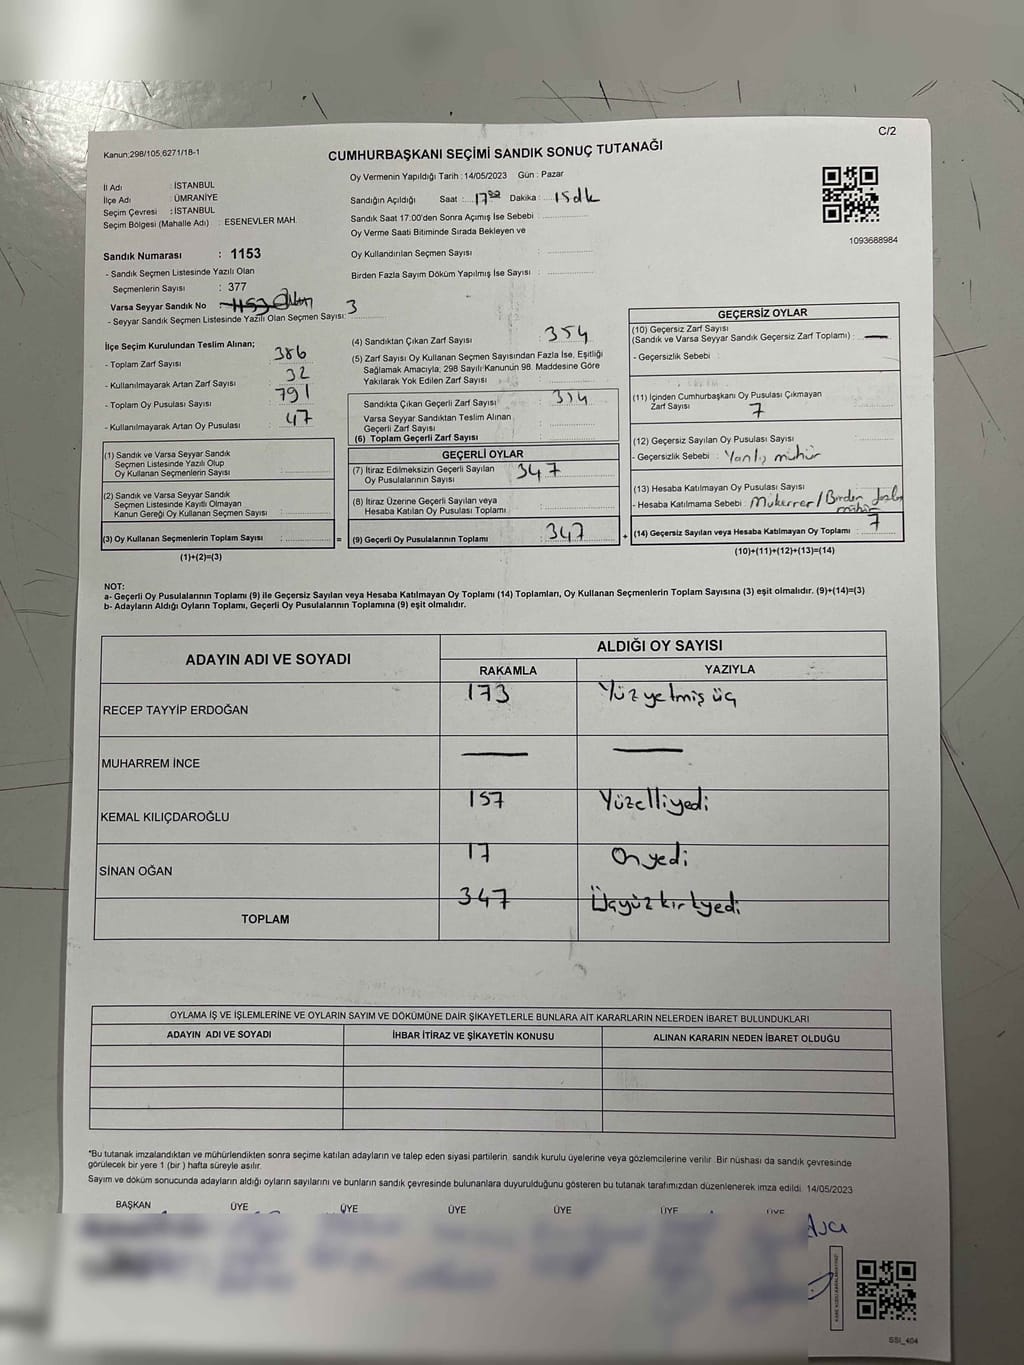 C/2
Kanun;298/105;6271/18-1
CUMHURBAŞKANI SEÇİMİ SANDIK SONUÇ TUTANAĞI
İl Adı : İSTANBUL
İlçe Adı : ÜMRANİYE
Seçim Çevresi : İSTANBUL
Seçim Bölgesi (Mahalle Adı) : ESENEVLER MAH.
Oy Vermenin Yapıldığı Tarih :14/05/2023 Gün : Pazar
Sandığın Açıldığı Saat :.. 17⁰⁰ Dakika :... 15dk
Sandık Saat 17.00'den Sonra Açımış İse Sebebi :
Oy Verme Saati Bitiminde Sırada Bekleyen ve
Oy Kullandırılan Seçmen Sayısı :
Birden Fazla Sayım Döküm Yapılmış İse Sayısı :
1093688984
Sandık Numarası : 1153
- Sandık Seçmen Listesinde Yazılı Olan
Seçmenlerin Sayısı : 377
Varsa Seyyar Sandık No : 1153
- Seyyar Sandık Seçmen Listesinde Yazılı Olan Seçmen Sayısı: 3
İlçe Seçim Kurulundan Teslim Alınan;
- Toplam Zarf Sayısı 386
- Kullanılmayarak Artan Zarf Sayısı 32
- Toplam Oy Pusulası Sayısı 791
- Kullanılmayarak Artan Oy Pusulası 47
(1) Sandık ve Varsa Seyyar Sandık
Seçmen Listesinde Yazılı Olup
Oy Kullanan Seçmenlerin Sayısı :
(2) Sandık ve Varsa Seyyar Sandık
Seçmen Listesinde Kayıtlı Olmayan
Kanun Gereği Oy Kullanan Seçmen Sayısı :
(3) Oy Kullanan Seçmenlerin Toplam Sayısı : =
(1)+(2)=(3)
(4) Sandıktan Çıkan Zarf Sayısı : 354
(5) Zarf Sayısı Oy Kullanan Seçmen Sayısından Fazla İse, Eşitliği
Sağlamak Amacıyla, 298 Sayılı Kanunun 98. Maddesine Göre
Yakılarak Yok Edilen Zarf Sayısı :
Sandıkta Çıkan Geçerli Zarf Sayısı : 354
Varsa Seyyar Sandıktan Teslim Alınan
Geçerli Zarf Sayısı :
(6) Toplam Geçerli Zarf Sayısı :
GEÇERLİ OYLAR
(7) İtiraz Edilmeksizin Geçerli Sayılan
Oy Pusulalarının Sayısı 347
(8) İtiraz Üzerine Geçerli Sayılan veya
Hesaba Katılan Oy Pusulası Toplamı :
(9) Geçerli Oy Pusulalarının Toplamı : 347 +
GEÇERSİZ OYLAR
(10) Geçersiz Zarf Sayısı
(Sandık ve Varsa Seyyar Sandık Geçersiz Zarf Toplamı) : —
- Geçersizlik Sebebi :
(11) İçinden Cumhurbaşkanı Oy Pusulası Çıkmayan
Zarf Sayısı : 7
(12) Geçersiz Sayılan Oy Pusulası Sayısı :
- Geçersizlik Sebebi : Yanlış mühür
(13) Hesaba Katılmayan Oy Pusulası Sayısı :
- Hesaba Katılmama Sebebi : Mükerrer/Birden fazla
mühür
(14) Geçersiz Sayılan veya Hesaba Katılmayan Oy Toplamı : 7
(10)+(11)+(12)+(13)=(14)
NOT:
a- Geçerli Oy Pusulalarının Toplamı (9) ile Geçersiz Sayılan veya Hesaba Katılmayan Oy Toplamı (14) Toplamları, Oy Kullanan Seçmenlerin Toplam Sayısına (3) eşit olmalıdır. (9)+(14)=(3)
b- Adayların Aldığı Oyların Toplamı, Geçerli Oy Pusulalarının Toplamına (9) eşit olmalıdır.
ADAYIN ADI VE SOYADI ALDIĞI OY SAYISI
RAKAMLA YAZIYLA
RECEP TAYYİP ERDOĞAN 173 Yüz yetmiş üç
MUHARREM İNCE — —
KEMAL KILIÇDAROĞLU 157 Yüzelliyedi
SİNAN OĞAN 17 On yedi
TOPLAM 347 Üçyüz kırkyedi
OYLAMA İŞ VE İŞLEMLERİNE VE OYLARIN SAYIM VE DÖKÜMÜNE DAİR ŞİKAYETLERLE BUNLARA AİT KARARLARIN NELERDEN İBARET BULUNDUKLARI
ADAYIN ADI VE SOYADI İHBAR İTİRAZ VE ŞİKAYETİN KONUSU ALINAN KARARIN NEDEN İBARET OLDUĞU
*Bu tutanak imzalandıktan ve mühürlendikten sonra seçime katılan adayların ve talep eden siyasi partilerin sandık kurulu üyelerine veya gözlemcilerine verilir. Bir nüshası da sandık çevresinde
görülecek bir yere 1 (bir ) hafta süreyle asılır.
Sayım ve döküm sonucunda adayların aldığı oyların sayılarını ve bunların sandık çevresinde bulunanlara duyurulduğunu gösteren bu tutanak tarafımızdan düzenlenerek imza edildi. 14/05/2023
BAŞKAN ÜYE ÜYE ÜYE ÜYE ÜYE ÜYE
SSI_404